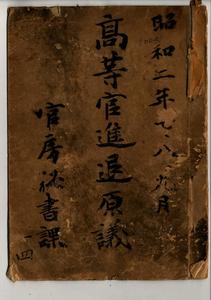 昭和二年七、八、九月
高等官進退原議
官房秘書課
一四